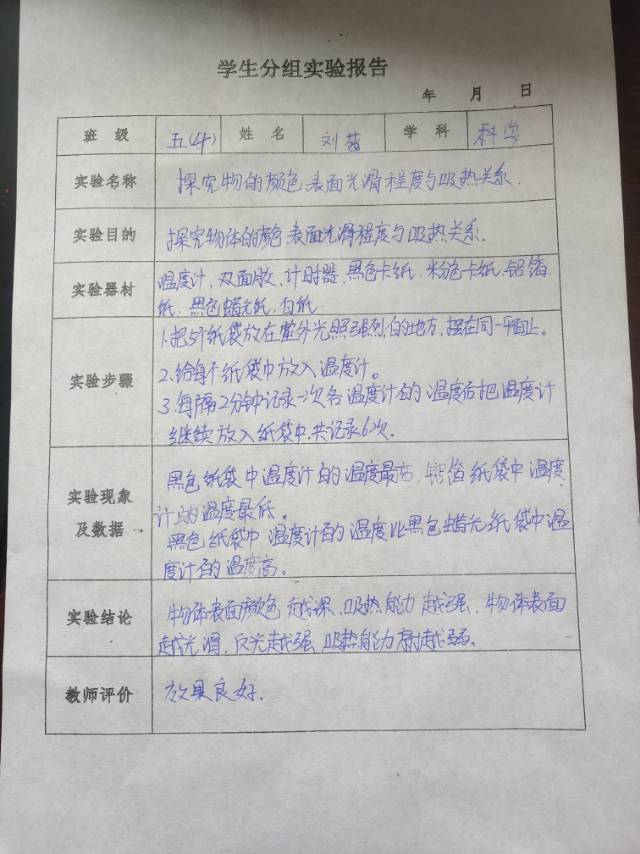 学生分组实验报告
年 月 日
班 级 五(4) 姓 名 刘茜 学 科 科学
实验名称 探究物的颜色表面光滑程度与吸热关系.
实验目的 探究物体的颜色表面光滑程度与吸热关系.
实验器材 温度计,双面胶,计时器,黑色卡纸,粉色卡纸,铝箔
纸,黑色蜡光纸,白纸.
实验步骤 1.把5个纸袋放在室外光照强烈的地方,摆在同一平面上。
2.给每个纸袋中放入温度计。
3.每隔2分钟记录一次各温度计的温度后把温度计
继续放入纸袋中,共记录6次.
实验现象
及数据
黑色纸袋中温度计的温度最高,铝箔纸袋中温度
计的温度最低。
黑色纸袋中温度计的温度比黑色蜡光纸袋中温
度计的温度高。
实验结论 物体表面颜色越深,吸热能力越强,物体表面
越光滑,反光越强,吸热能力越弱.
教师评价 效果良好.